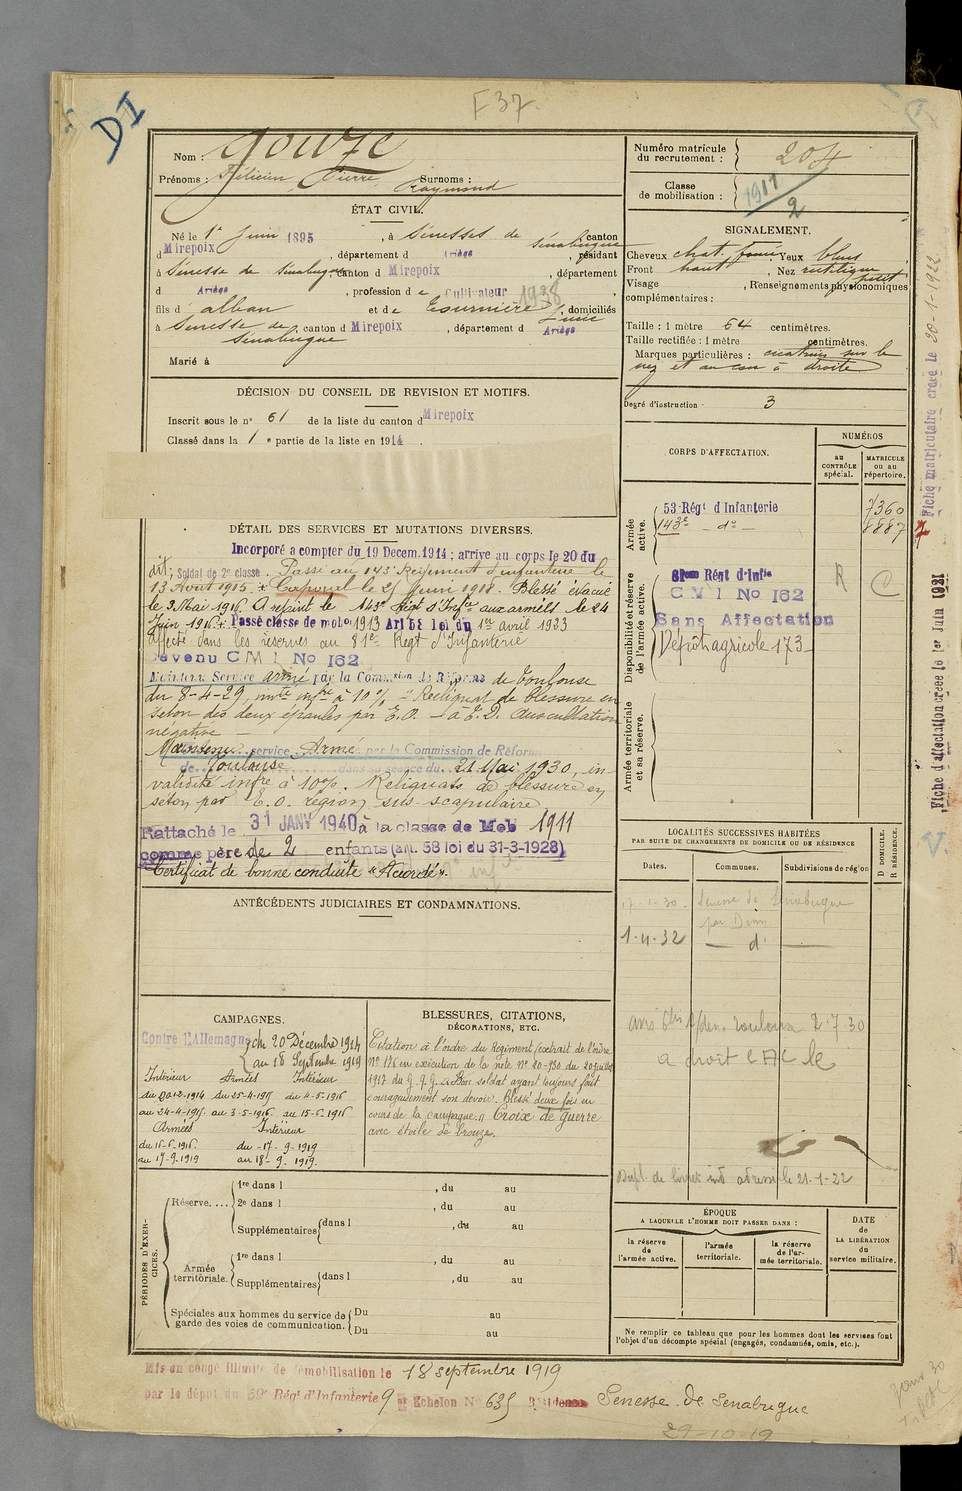 F 37
DI
Nom : Gouze
Prénoms : Félicien, Pierre, Surnoms :
Raymond
Numéro matricule
du recrutement : 204
Classe
de mobilisation : 1911
2
ÉTAT CIVIL.
Né le 1er Juin 1895, à Senesses de Sénabugue canton
d Mirepoix, département d Ariège, résidant
à Senesse de Senabugue canton d Mirepoix, département
d Ariège, profession de Cultivateur 1938
fils d' alban et de Tournière Junie, domiciliés
à Senesse de Senabugue, canton d Mirepoix, département d Ariège
Marié à
SIGNALEMENT.
Cheveux chat. foncé Yeux bleus,
Front haut, Nez rectiligne petit
Visage , Renseignements physionomiques
complémentaires :
Taille : 1 mètre 64 centimètres.
Taille rectifiée : 1 mètre centimètres.
Marques particulières : cicatrices sur le
nez et au cou à droite
Degré d'instruction 3
DÉCISION DU CONSEIL DE REVISION ET MOTIFS.
Inscrit sous le n° 61 de la liste du canton d Mirepoix
Classé dans la 1 e partie de la liste en 1914.
DÉTAIL DES SERVICES ET MUTATIONS DIVERSES.
Incorporé a compter du 19 Decem. 1914 ; arrive au corps le 20 du
dit; Soldat de 2e classe. Passé au 143e Régiment d'infanterie le
13 Aout 1915. + Caporal le 25 Juin 1918. Blessé évacué
le 3 Mai 1916. A rejoint le 143e Régt d'Infie aux armées le 24
Juin 1916. + Passé classe de mobon 1913 Art 58 loi du 1er avril 1923
Affecté dans les réserves au 81e Regt d'Infanterie
Devenu C M I No 162
Maintenu Service armé par la Commxion de Réforme de Toulouse
du 8-4-29, invté infre à 10% - Reliquat de blessure en
seton des deux épaules par E.O. - à E.D. Auscultation
négative
Maintenu service Armé par la Commission de Réforme
de Toulouse dans sa séance du 21 Mai 1930, in-
validité infre à 10%. Reliquats de blessure en
seton par E.O. région sus-scapulaire
Rattaché le 31 JANV 1940 à la classe de Mob 1911
comme père de 2 enfants (art. 58 loi du 31-3-1928)
Certificat de bonne conduite "Accordé".
CORPS D'AFFECTATION.
NUMÉROS
au
CONTRÔLE
spécial.
MATRICULE
ou au
répertoire.
Armée
active.
53 Régt d'Infanterie 7360
143e - do - 8887
Disponibilité et réserve
de l'armée active.
81eme Régt d'Infie R C
C M I No 162
Sans Affectation
Dépôt agricole 173
Armée territoriale
et sa réserve.
Fiche matriculaire creeé le 20-1-1922
Fiche d'affectation creee le 1er Juin 1921
ANTÉCÉDENTS JUDICIAIRES ET CONDAMNATIONS.
LOCALITÉS SUCCESSIVES HABITÉES
PAR SUITE DE CHANGEMENTS DE DOMICILE OU DE RÉSIDENCE
Dates. Communes. Subdivisions de région
D DOMICILE.
R RÉSIDENCE.
17-1-30. Senesse de Senabugue
par Dun
1-4-32 - d° -
Toulouse 2-7-30
a droit
adressé le 21-1-22
CAMPAGNES.
Contre l'Allemagne du 20 Décembre 1914
au 18 Septembre 1919
Intérieur Armées Intérieur
du 20-12-1914 du 25-4-1915 du 4-5-1916
au 24-4-1915. au 3-5-1916 au 15-6-1916
Armées Intérieur
du 16-6-1916. du -17-9-1919
au 17-9-1919 au 18-9-1919.
BLESSURES, CITATIONS,
DÉCORATIONS, ETC.
Citation à l'ordre du Régiment (extrait de l'ordre
N° 176 en exécution de la note N° 20-930 du 20 juillet
1917 du G.Q.G. "Bon soldat ayant toujours fait
courageusement son devoir. Blessé deux fois en
cours de la campagne." Croix de guerre
avec étoile de bronze.
PÉRIODES D'EXER-
CICES.
Réserve.... 1re dans l , du au
2e dans l , du au
Supplémentaires dans l , du au
Armée
territoriale. 1re dans l , du au
Supplémentaires dans l , du au
Spéciales aux hommes du service de
garde des voies de communication. Du au
Du au
ÉPOQUE
A LAQUELLE L'HOMME DOIT PASSER DANS :
la réserve
de
l'armée active.
l'armée
territoriale.
la réserve
de l'ar-
mée territoriale.
DATE
de
LA LIBÉRATION
du
service militaire.
Ne remplir ce tableau que pour les hommes dont les services font
l'objet d'un décompte spécial (engagés, condamnés, omis, etc.).
Mis en congé illimité de démobilisation le 18 septembre 1919
par le dépôt du 59e Régt d'Infanterie 9e Echelon N° 635 Résidence Senesse de Senabugue
29-10-19